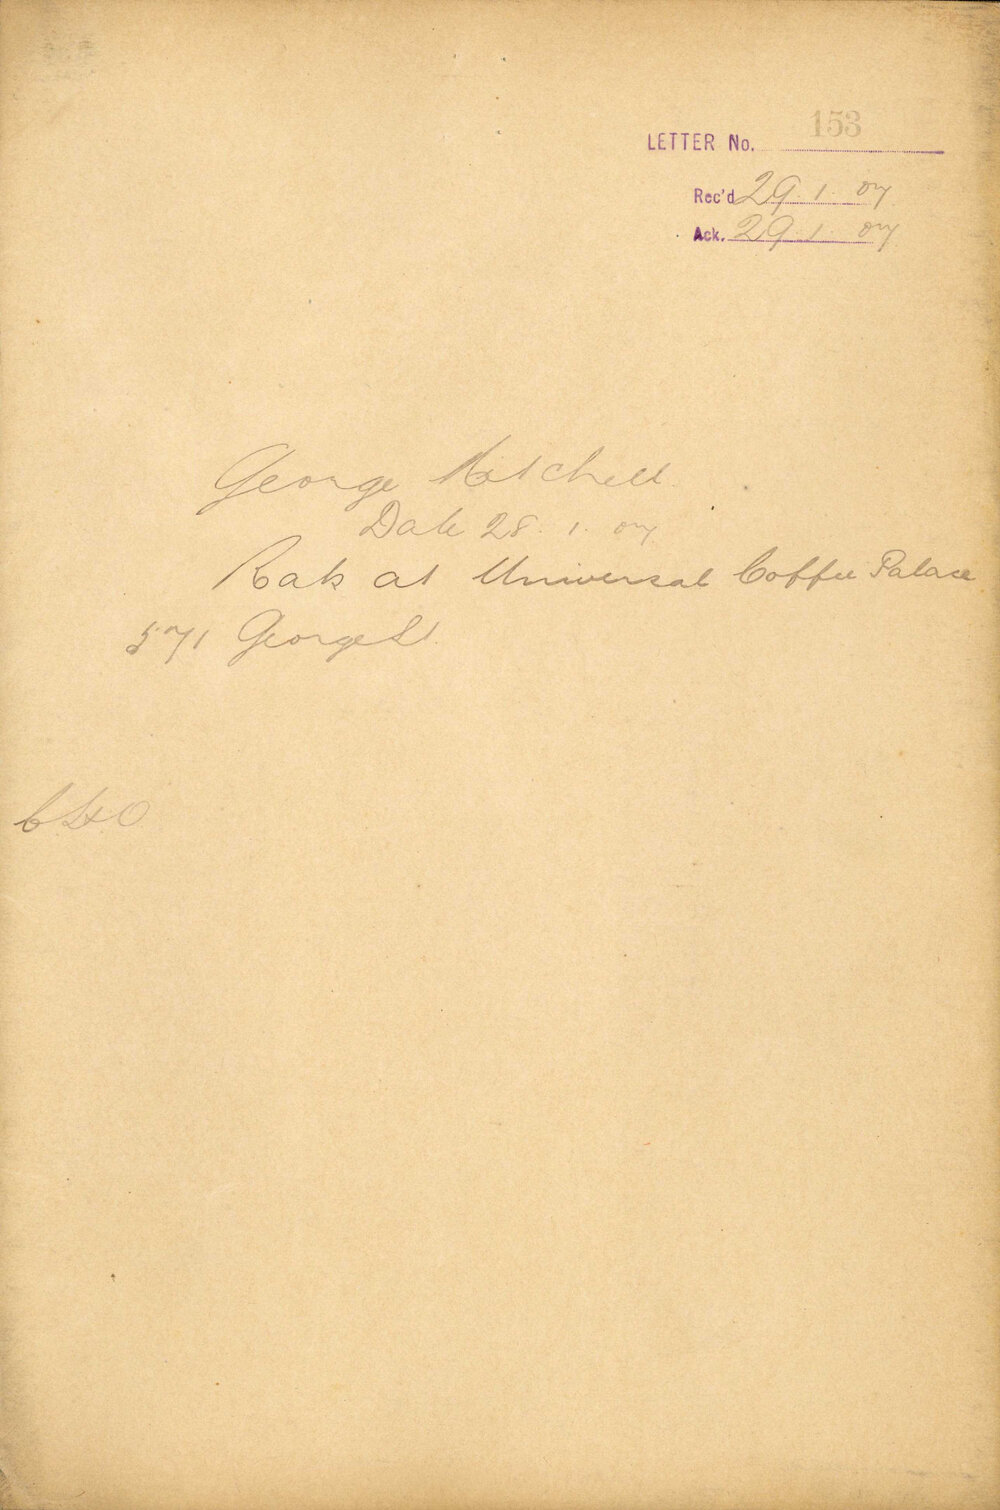 LETTER No. 153
Rec'd 29. 1. 07
Ack. 29. 1. 07
George Mitchell
Date 28. 1. 07
Rats at Universal Coffee Palace
571 George St.